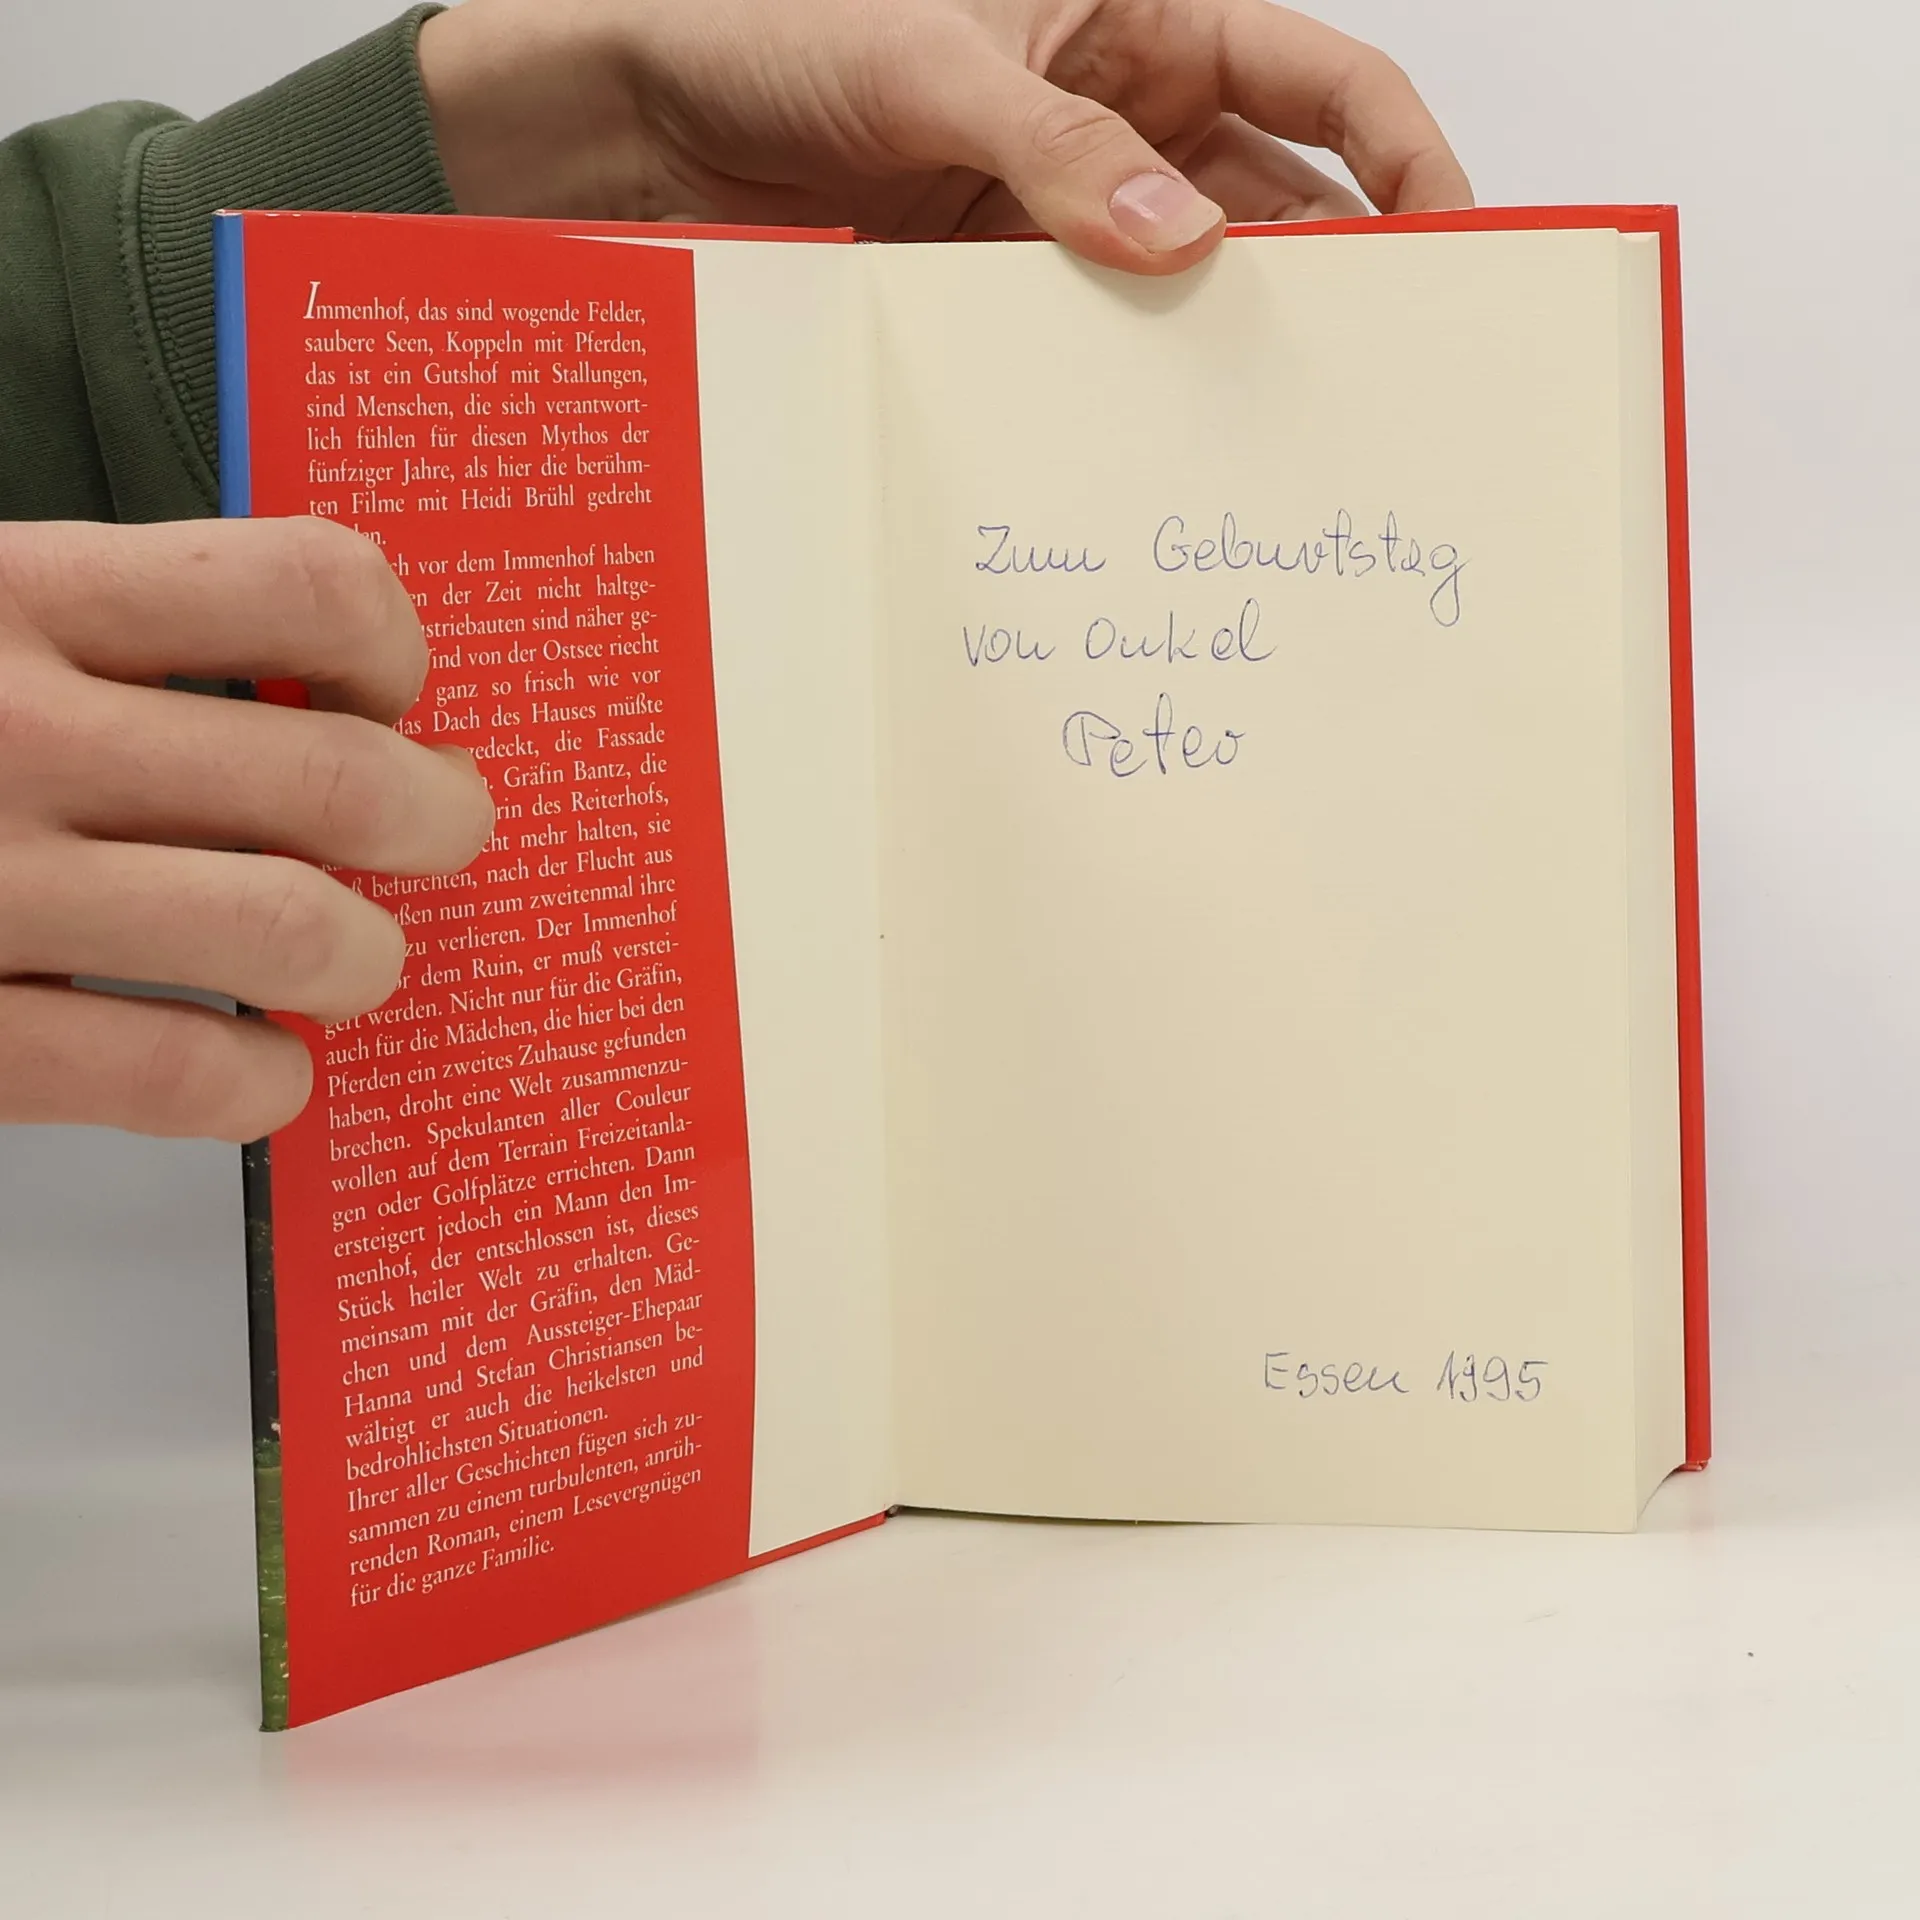 Immenhof, das sind wogende Felder,
saubere Seen, Koppeln mit Pferden,
das ist ein Gutshof mit Stallungen,
sind Menschen, die sich verantwort-
lich fühlen für diesen Mythos der
fünfziger Jahre, als hier die berühm-
ten Filme mit Heidi Brühl gedreht
vor dem Immenhof haben
der Zeit nicht haltge-
sind näher ge-
von der Ostsee riecht
ganz so frisch wie vor
das Dach des Hauses müßte
gedeckt, die Fassade
Gräfin Bantz, die
des Reiterhofs,
mehr halten, sie
befürchten, nach der Flucht aus
nun zum zweitenmal ihre
zu verlieren. Der Immenhof
dem Ruin, er muß verstei-
gert werden. Nicht nur für die Gräfin,
auch für die Mädchen, die hier bei den
Pferden ein zweites Zuhause gefunden
haben, droht eine Welt zusammenzu-
brechen. Spekulanten aller Couleur
wollen auf dem Terrain Freizeitanla-
gen oder Golfplätze errichten. Dann
ersteigert jedoch ein Mann den Im-
menhof, der entschlossen ist, dieses
Stück heiler Welt zu erhalten. Ge-
meinsam mit der Gräfin, den Mäd-
chen und dem Aussteiger-Ehepaar
Hanna und Stefan Christiansen be-
wältigt er auch die heikelsten und
bedrohlichsten Situationen.
Ihrer aller Geschichten fügen sich zu-
sammen zu einem turbulenten, anrüh-
renden Roman, einem Lesevergnügen
für die ganze Familie.
Zum Geburtstag
von Onkel
Peter
Essen 1995